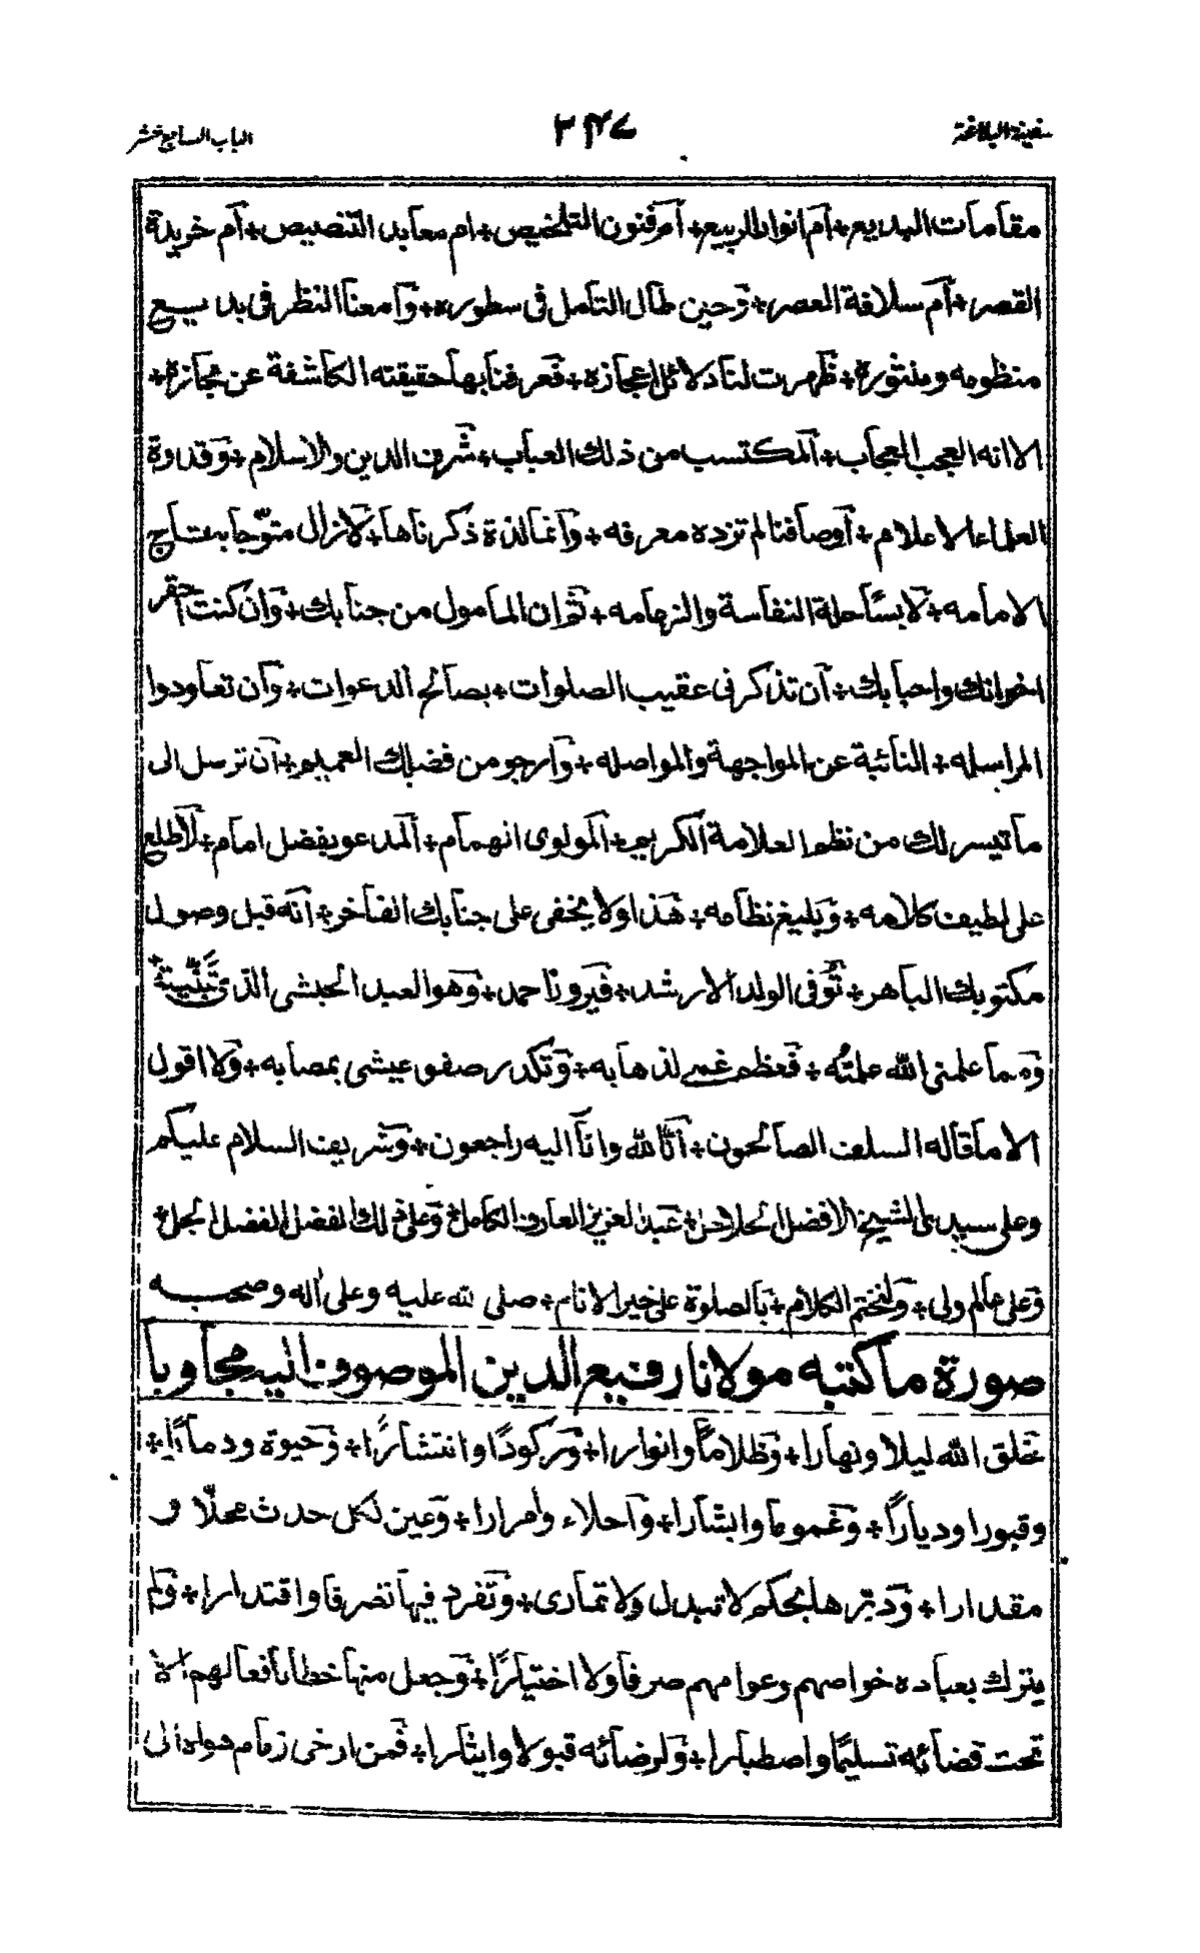 سفينة البلاغة ٣٤٧ الباب السابع عشر
مقامات البديع + أم انوار الربيع + أم فنون التلخيص + ام معاهد التنصيص + أم خريدة
القصر + أم سلافة العصر + وحين طال التأمل فى سطوره + وأمعنا النظر فى بديع
منظومه ومنثوره + ظهرت لنا دلائل اعجازه + فعرفنا بها حقيقته الكاشفة عن مجازه +
الا انه العجب العجاب + المكتسب من ذلك العباب + شرف الدين والاسلام + وقدوة
العلماء الاعلام + أوصافنا لم تزده معرفه + وانما لذة ذكرناها + لازال متوّجا بتاج
الامامه + لابسًا حلة النفاسة والزهامه + ثم ان المامول من جنابك + وان كنت احقر
اخوانك واحبابك + أن تذكرنى عقيب الصلوات + بصالح الدعوات + وأن تعاودوا
المراسله + النائبة عن المواجهة والمواصله + وأرجو من فضلك العميم + أن ترسل الى
ما تيسر لك من نظم العلامة الكريم + المولوى انهمام + المدعو بفضل امام + لأطلع
على لطيف كلامه + وبليغ نظامه + هذا ولا يخفى على جنابك الفاخر + انه قبل وصول
مكتوبك الباهر + توفى الولد الارشد + فيروز احمد + وهو العبد الحبشى الذى تبنّيته +
ومما علمنى الله علمته + فعظم غمى لذهابه + وتكدر صفو عيشى بمصابه + ولا اقول
الا ما قاله السلف الصالحون + انّا لله وانا اليه راجعون + وشريف السلام عليكم
وعلى سيدى الشيخ الافضل الحلاحل + عبد العزيز العارف الكامل + وعلى ذلك الفضل المفضل الجل +
وعلى عالم ولى + ولنختم الكلام + بالصلوة على خير الانام + صلى لله عليه وعلى اله وصحبه
صورة ما كتبه مولانا رفيع الدين الموصوف اليه مجاوبا
خلق الله ليلا ونهارا + وظلامًا وانوارا + وركودًا وانتشارًا + وحيوة ودمارًا +
وقبورا وديارًا + وغموما وابشارا + وأحلاء وامرارا + وعين لكل حدث محلّا و
مقدارا + ودبّرها بحكم لا تبدل ولا تمارى + وتفرد فيها تصرفا واقتدارا + ولم
يترك بعباده خواصهم وعوامهم صرفا ولا اختيارًا + وجعل منها خطايا فعالهم
تحت قضائه تسليمًا واصطبارا + ولرضائه قبولا وايثارا + فمن ارخى زمام هواه الى